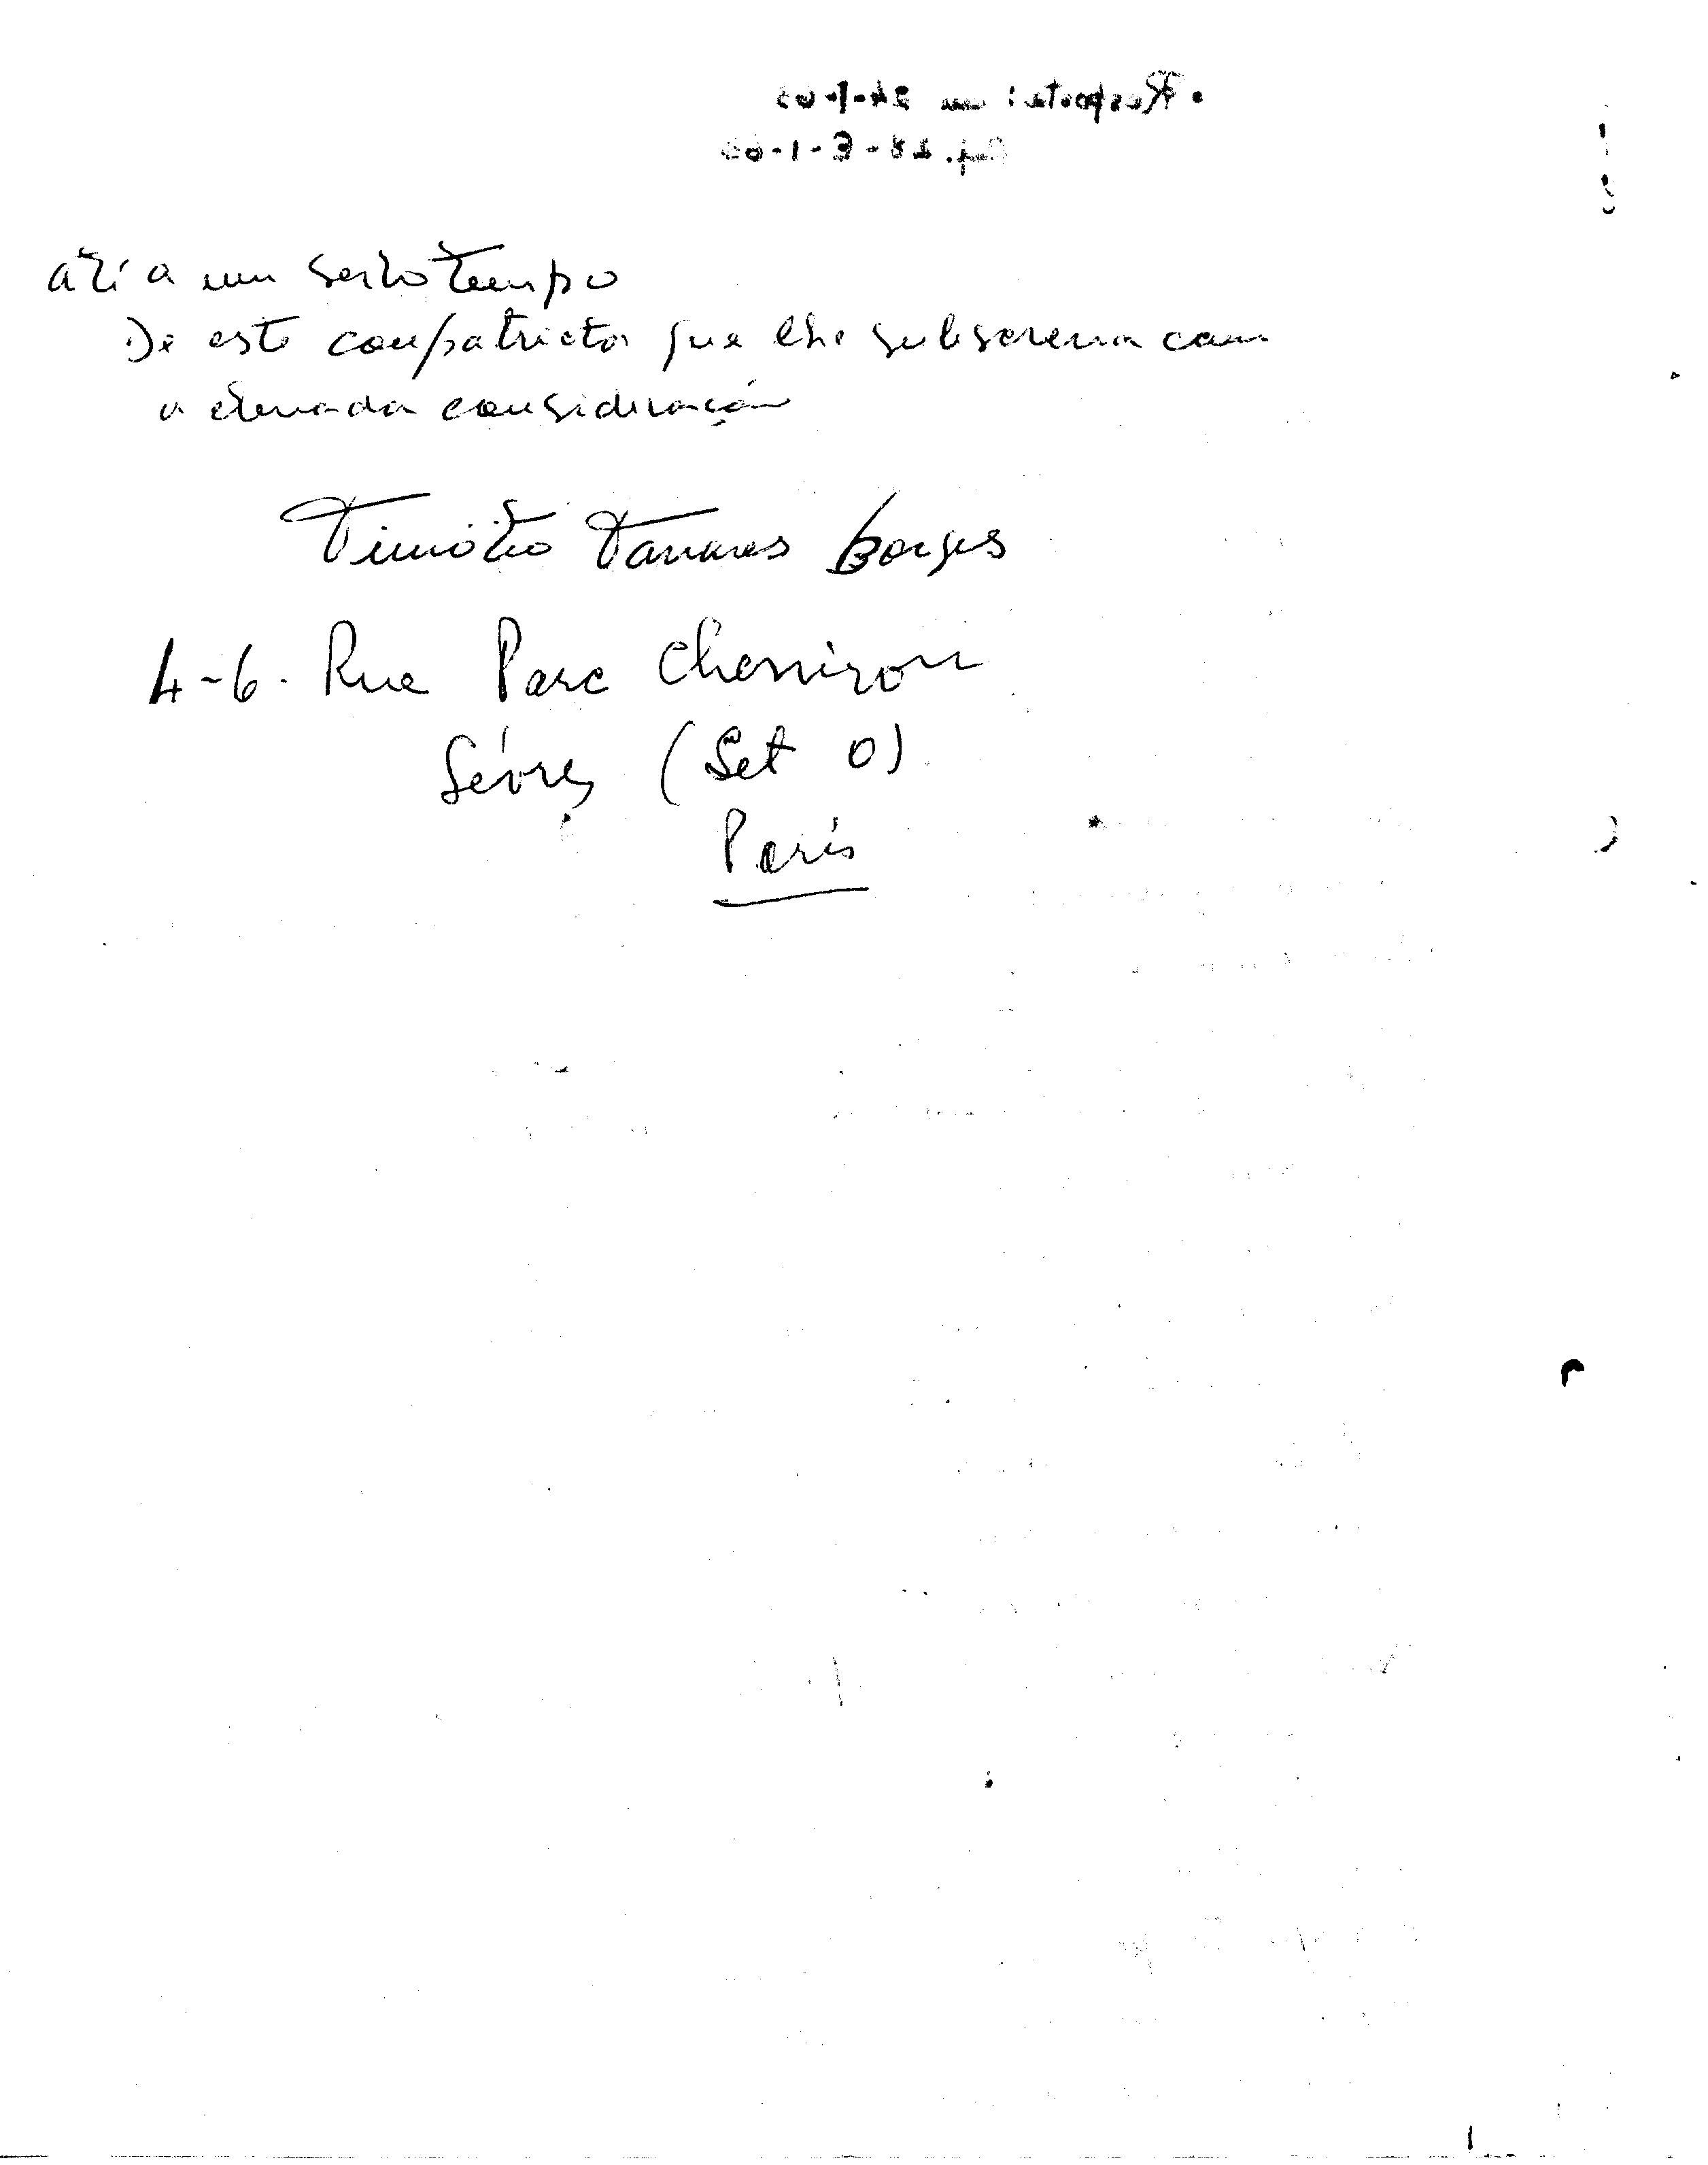 Resposta: em 24-1-63
28-E-1-63
até a um serto tempo
De este conpatricto que lhe subscrevea com
a elevada consideração
Timóteo Tavares Borges
4-6. Rue Parc Cheviron
Sévres (Set O)
París